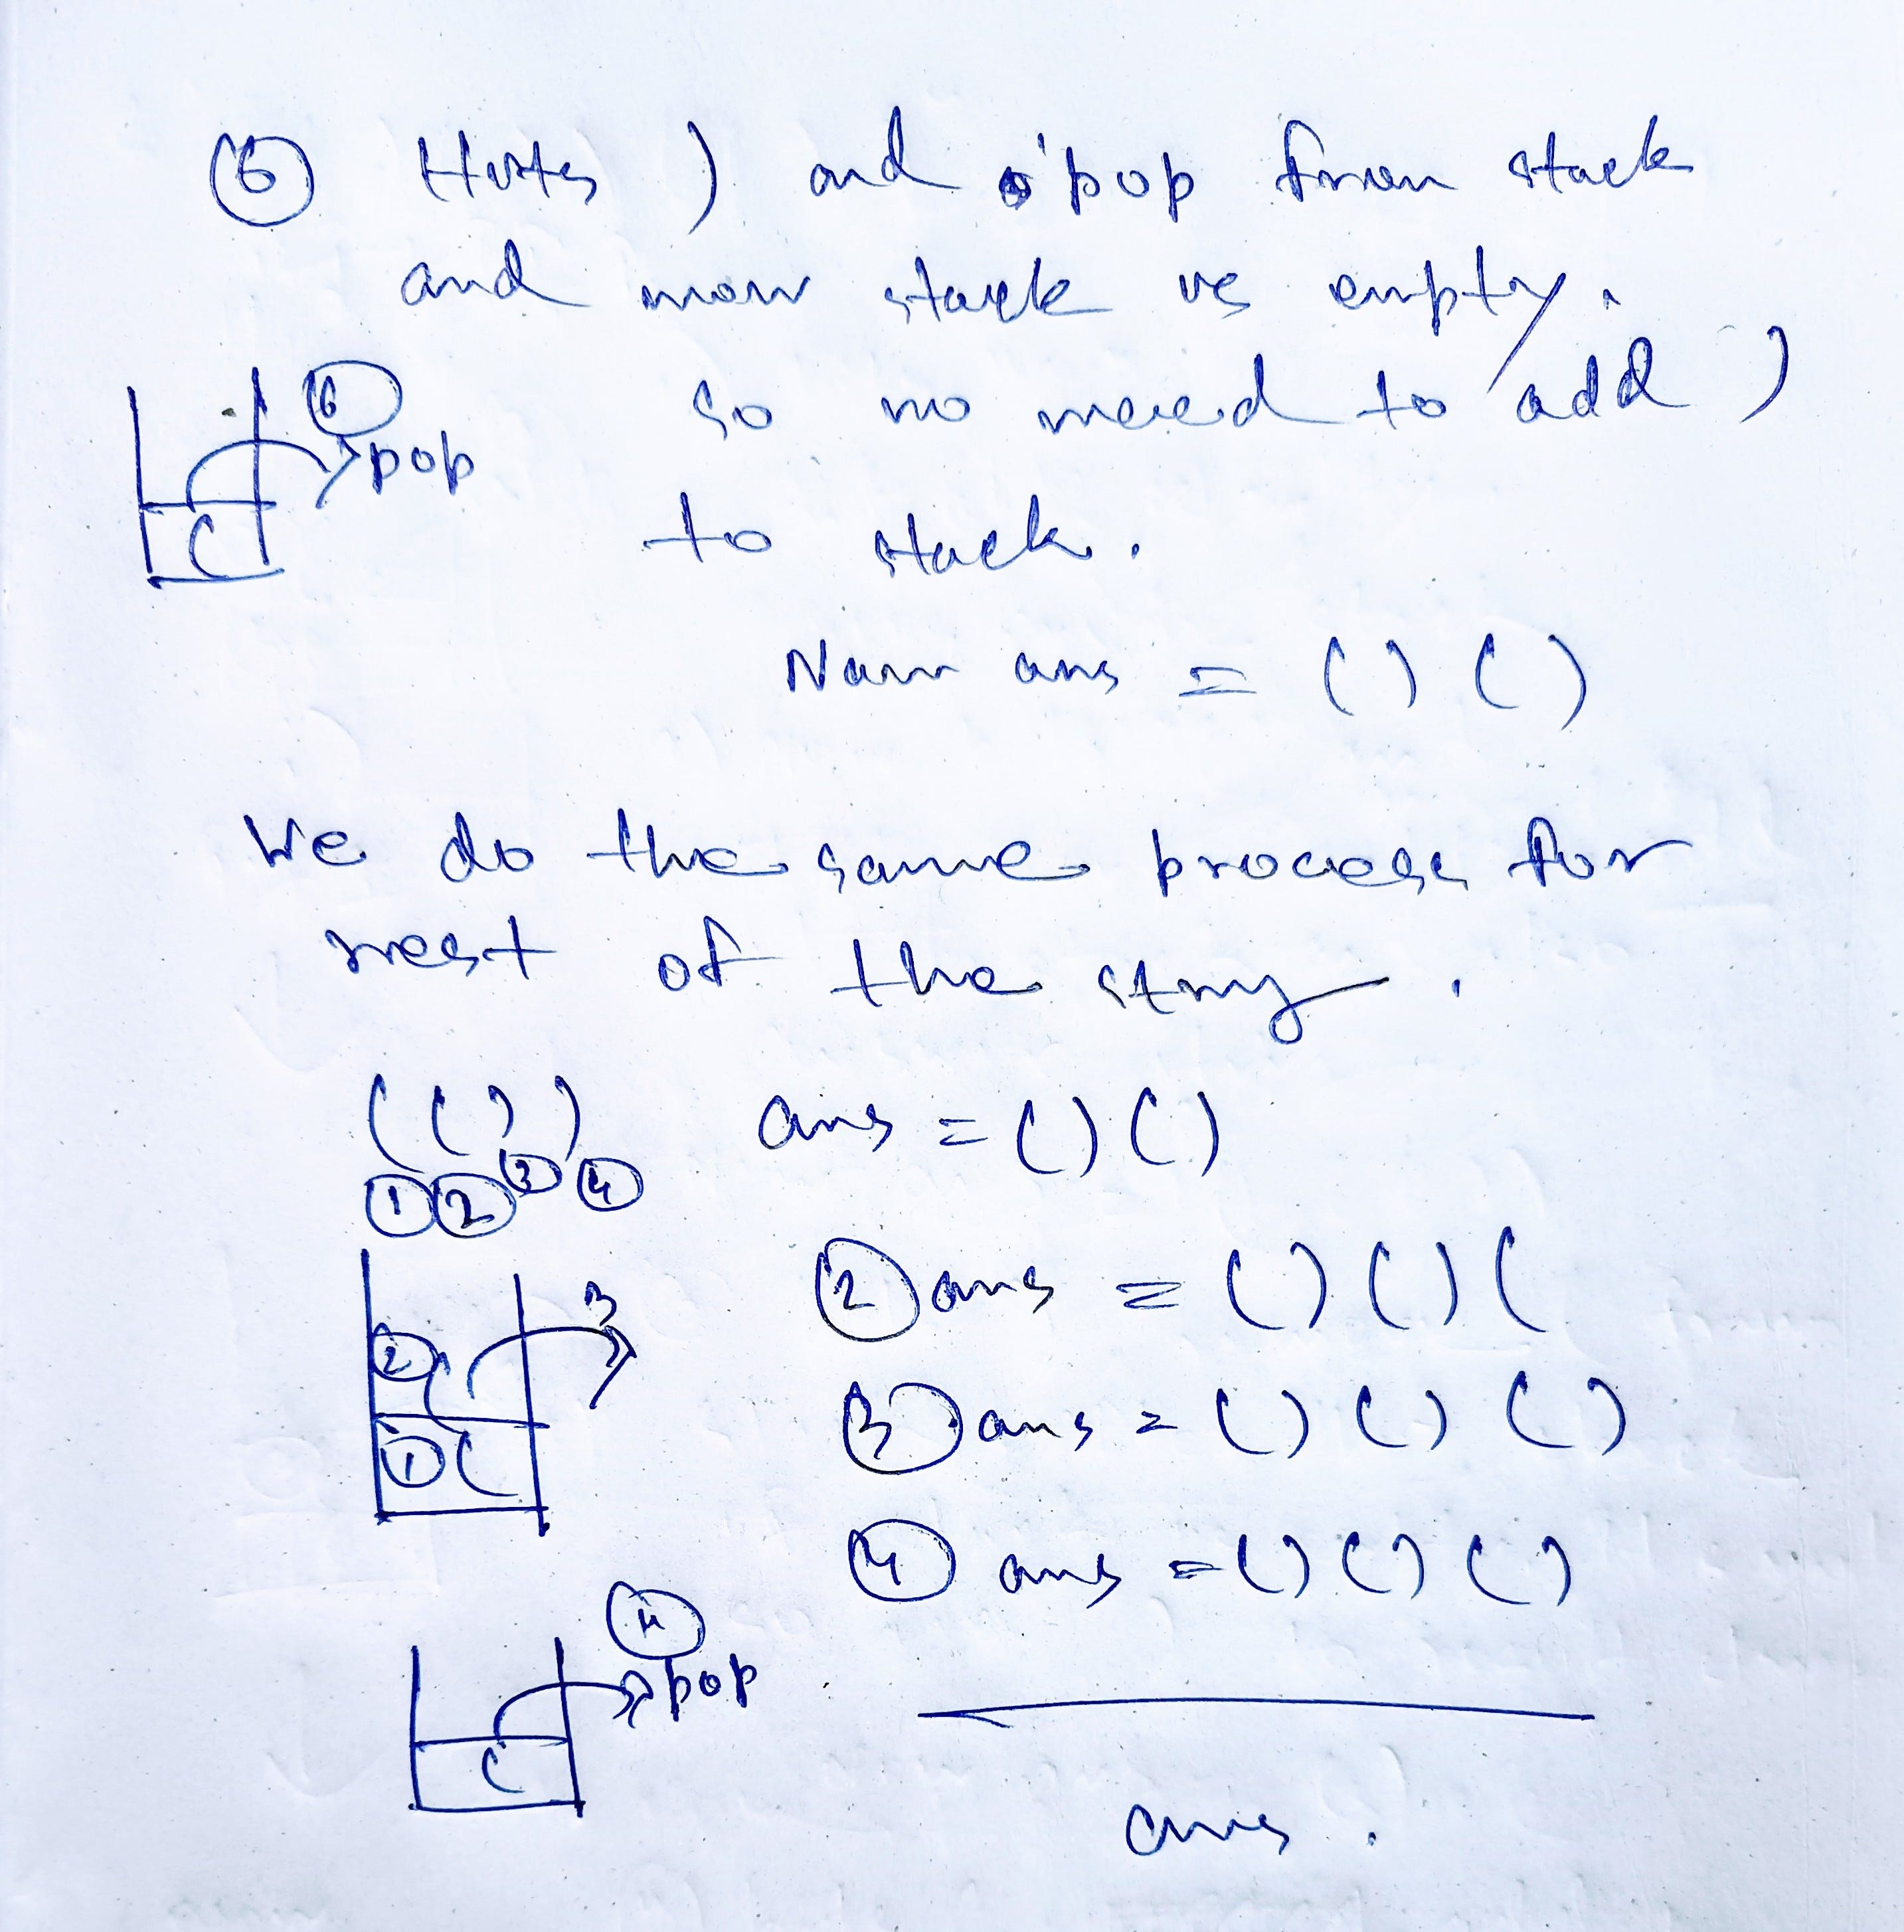 6 Hits ) and pop from stack
and now stack is empty.
6 pop
so no need to add )
(
to stack.
Now ans = ( ) ( )
We do the same process for
rest of the string.
( ( ) ) ans = ( ) ( )
1 2 3 4
2 ans = ( ) ( ) (
3
2 (
3 ans = ( ) ( ) ( )
1 (
4 ans = ( ) ( ) ( )
4
pop
(
ans.